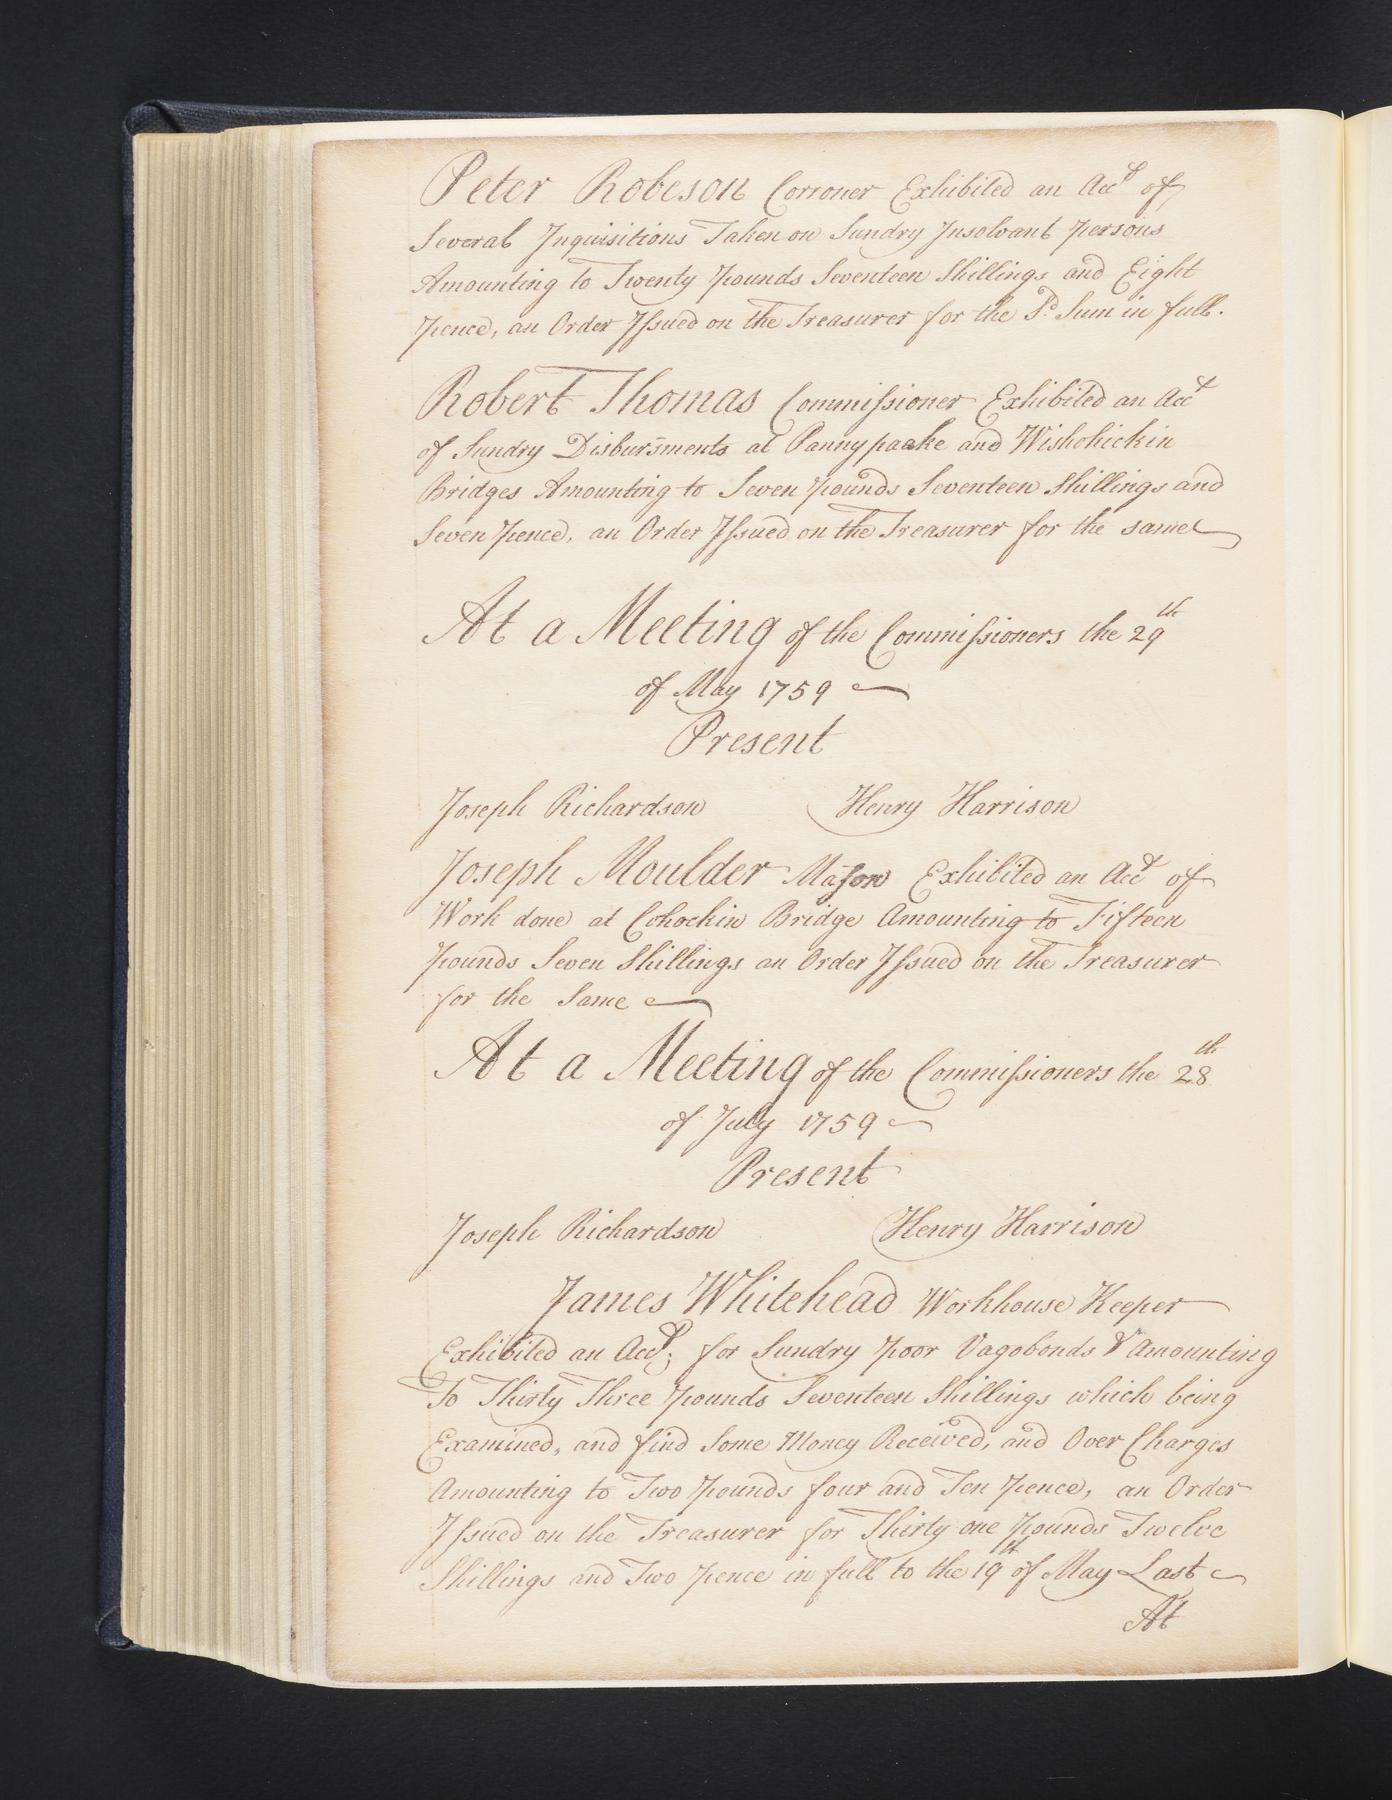 Peter Robeson Corroner Exhibited an Acct of
Several Inquisitions Taken on Sundry Insolvant persons
Amounting to Twenty pounds Seventeen Shillings and Eight
pence, an Order Issued on the Treasurer for the Sd. Sum in full.
Robert Thomas Commissioner Exhibited an Acct
of Sundry Disbursments at Pannypaake and Wishohickin
Bridges Amounting to Seven pounds Seventeen Shillings and
Seven pence, an Order Issued on the Treasurer for the same
At a Meeting of the Commissioners the 29th
of May 1759
Present
Joseph Richardson Henry Harrison
Joseph Moulder Mason Exhibited an Acct of
Work done at Cohockin Bridge Amounting to Fifteen
pounds Seven Shillings an Order Issued on the Treasurer
for the Same
At a Meeting of the Commissioners the 28th
of July 1759
Present
Joseph Richardson Henry Harrison
James Whitehead Workhouse Keeper
Exhibited an Acct; for Sundry poor Vagobonds & Amounting
To Thirty Three pounds Seventeen Shillings which being
Examined, and find Some Money Received, and Over Charges
Amounting to Two pounds four and Ten pence, an Order
Issued on the Treasurer for Thirty one pounds Twelve
Shillings and Two pence in full to the 19th of May Last
At